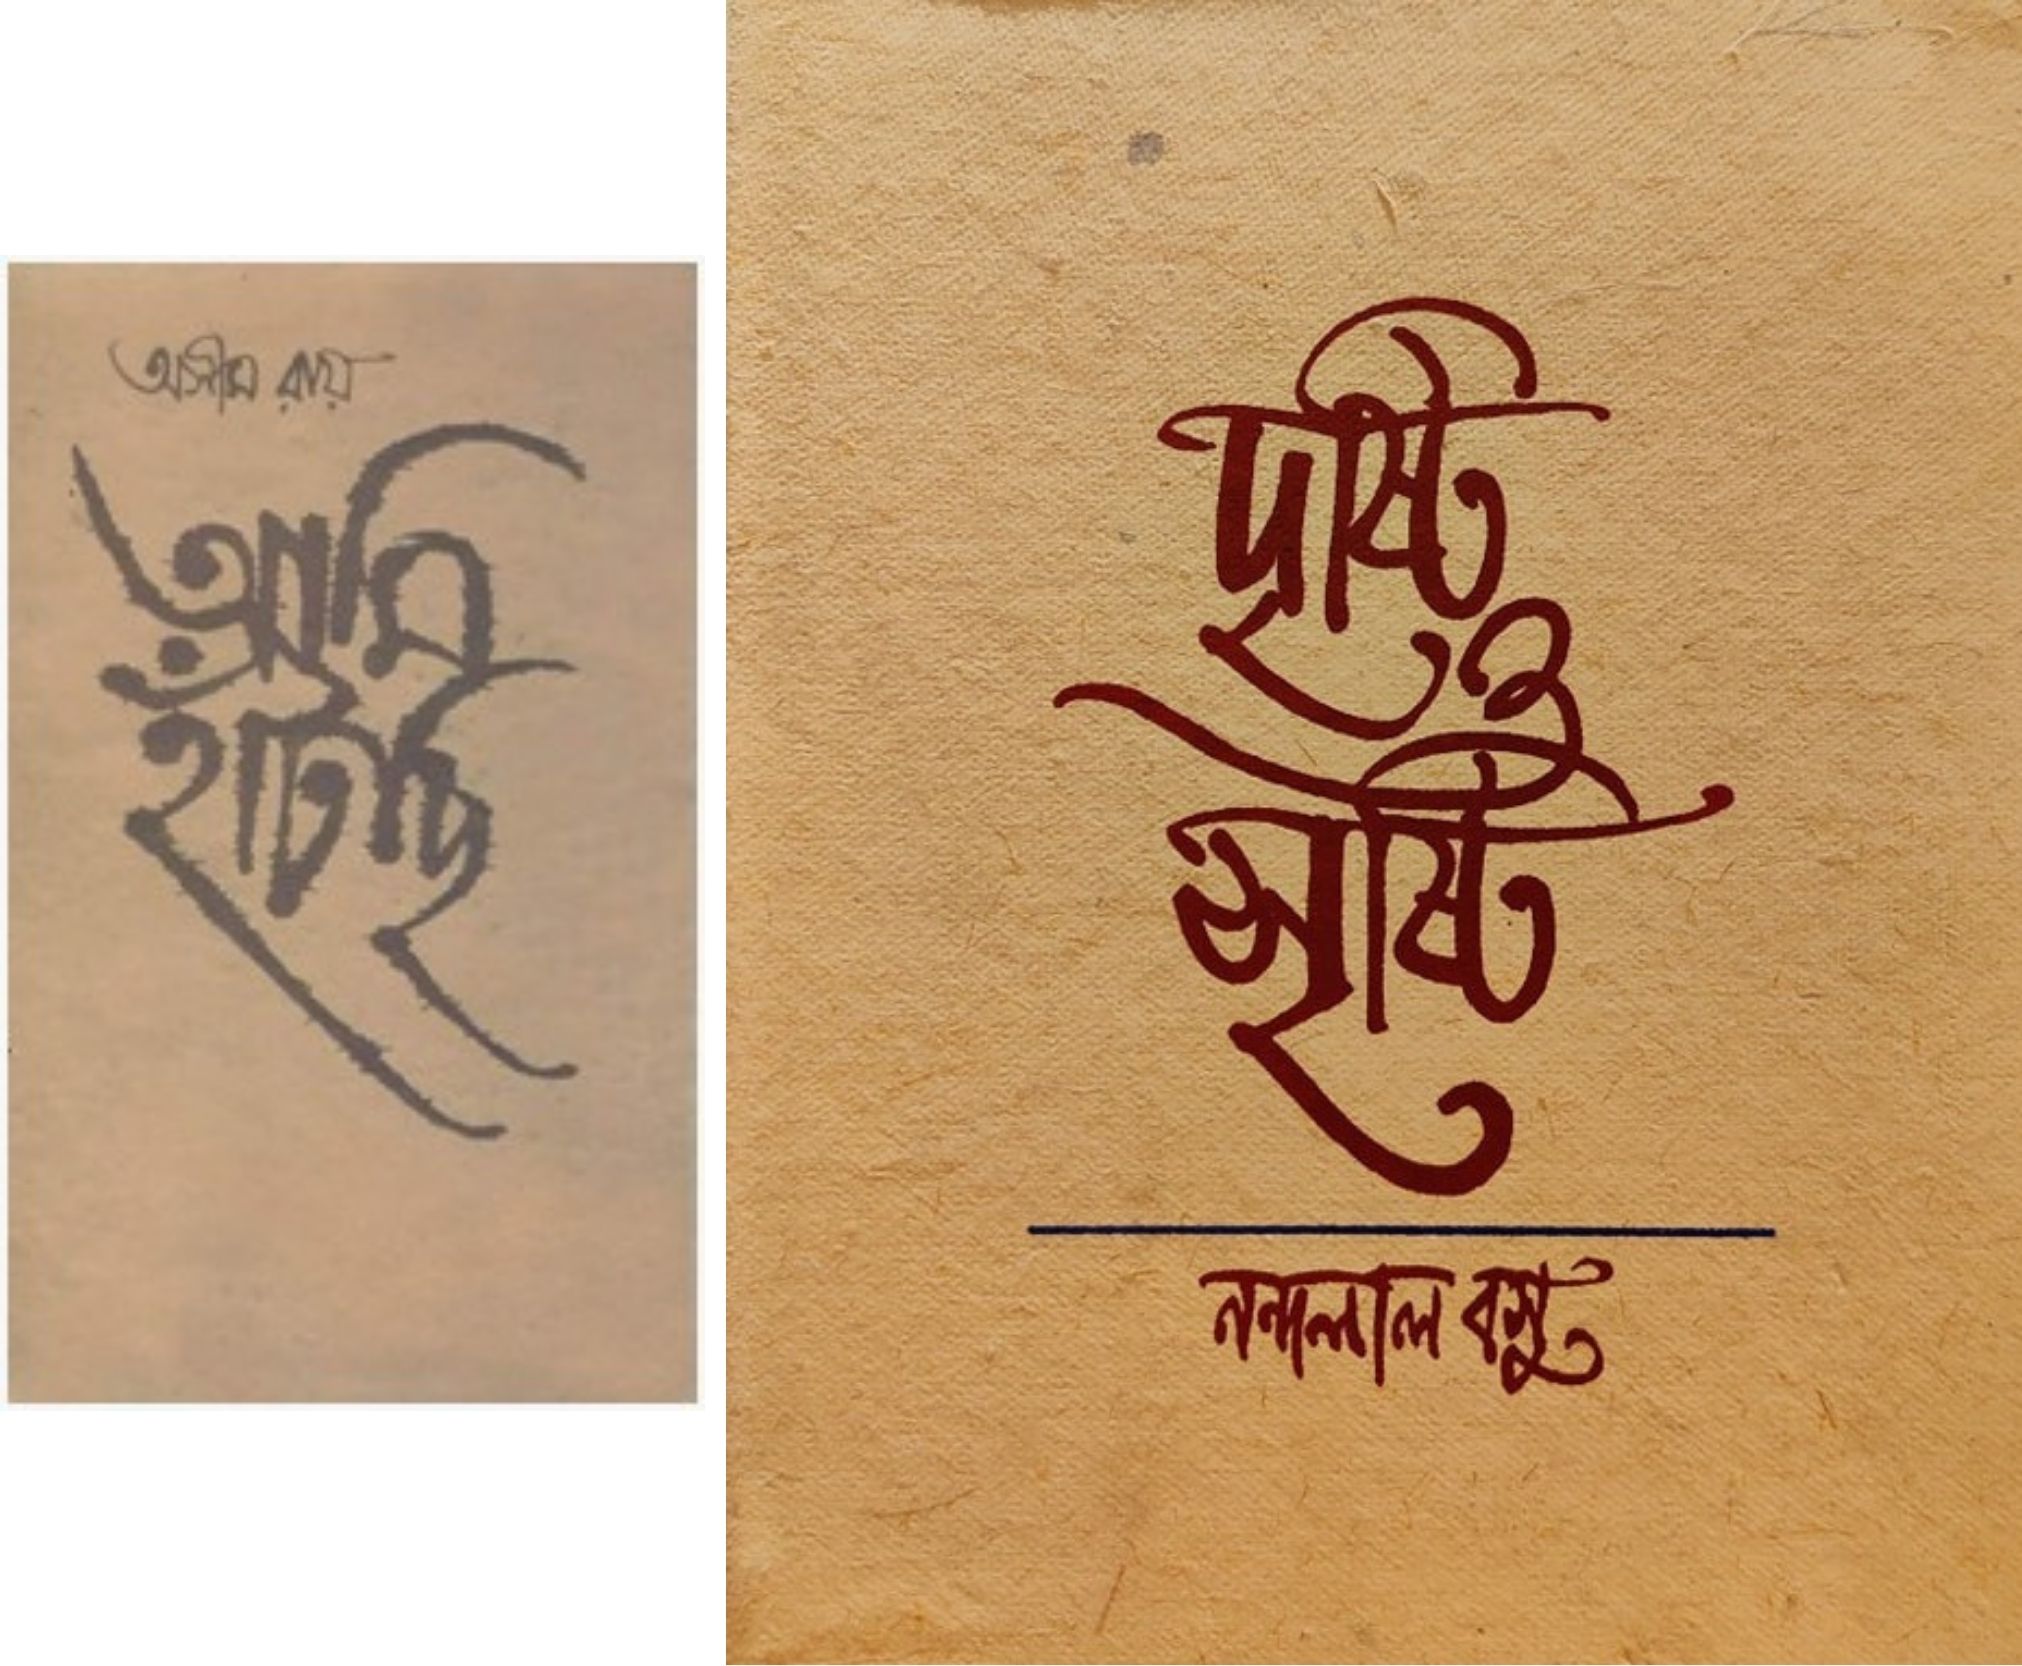 অসীম রায়
আমি
হাঁটছি
দৃষ্টি
ও
সৃষ্টি
নন্দলাল বসু